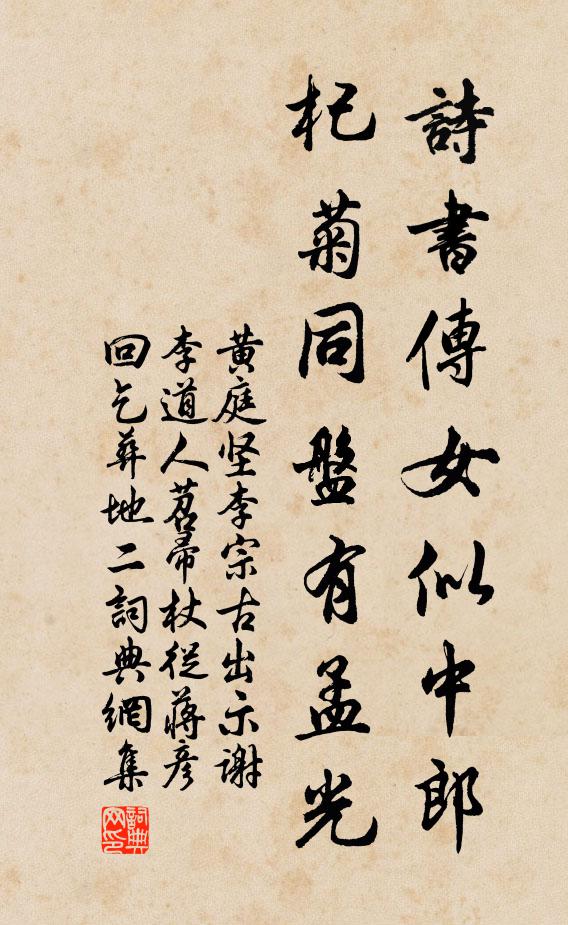 詩書傳女似中郎
杞菊同盤有孟光
黄庭坚李宗古出示谢
李道人苕帚杖從蒋彦
回乞葬地二詞典網集
詞典
网印